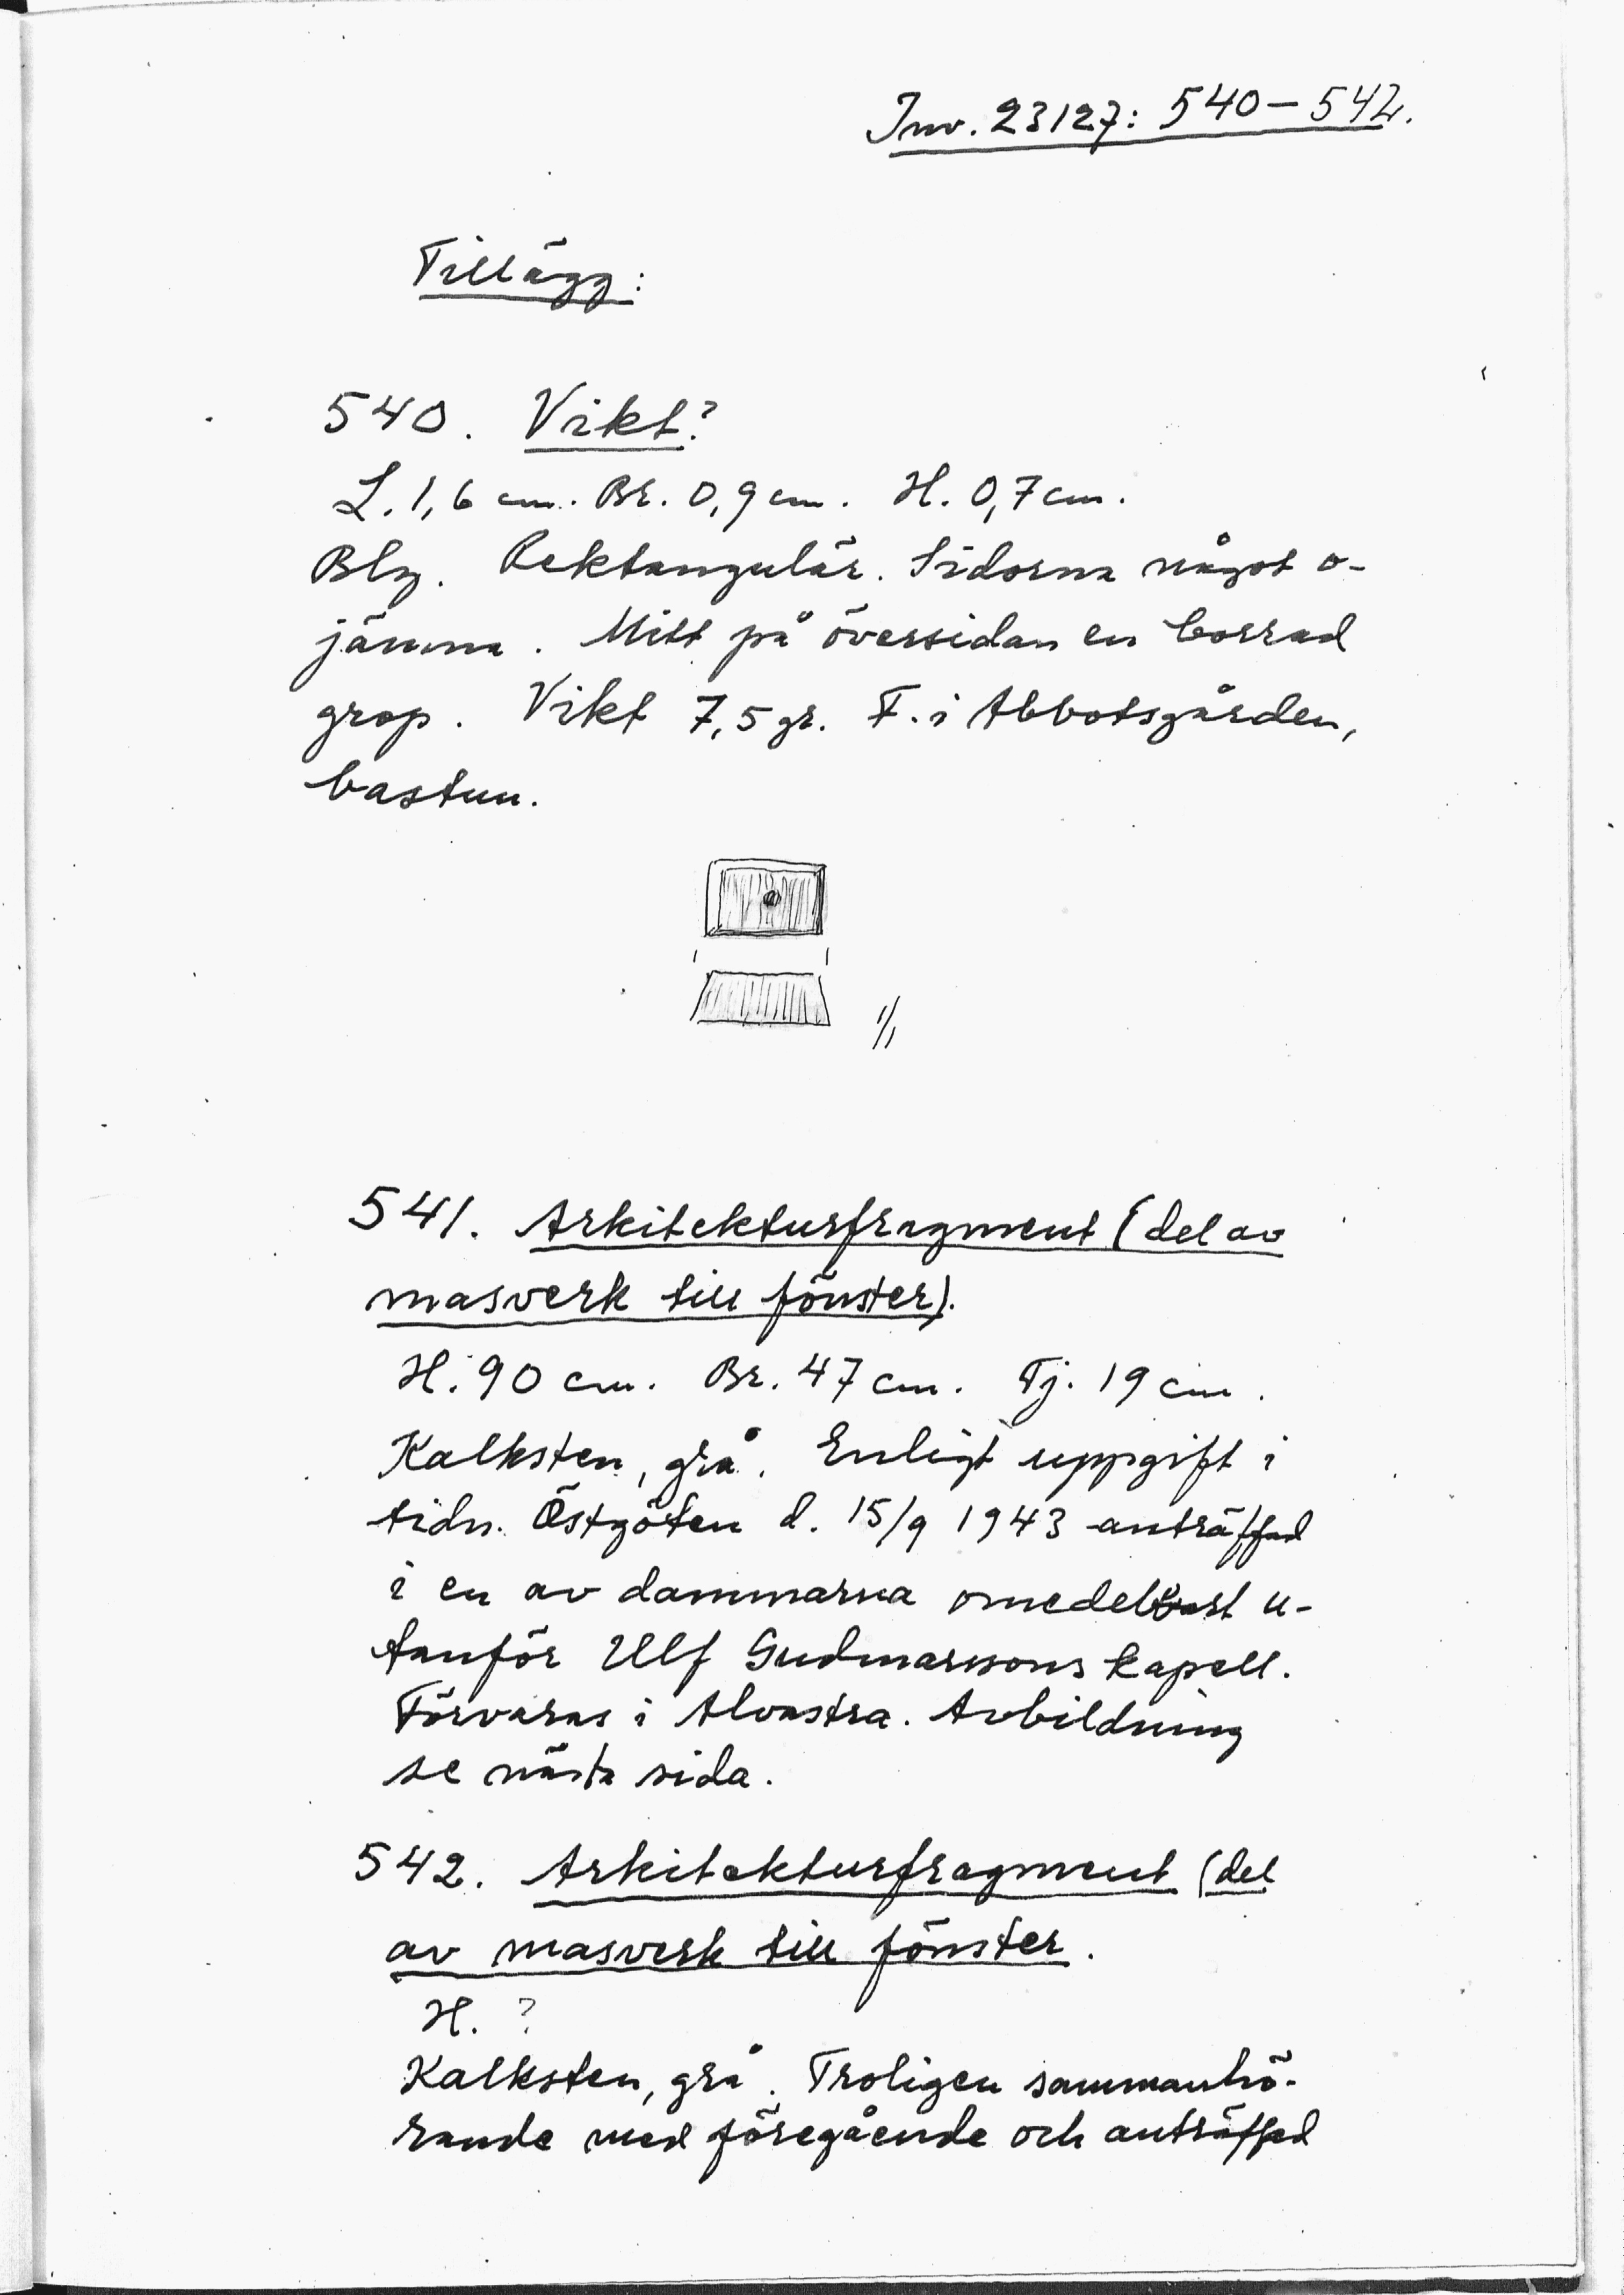 Inv. 23127: 540–542.
Tillägg:
540. Vikt?
L. 1,6 cm. Br. 0,9 cm. H. 0,7 cm.
Bly. Rektangulär. Sidorna något o-
jämna. Mitt på översidan en borrad
grop. Vikt 7,5 gr. F. i Abbotsgården,
bastun.
1/1
541. Arkitekturfragment (del av
masverk till fönster).
H. 90 cm. Br. 47 cm. Tj. 19 cm.
Kalksten, grå. Enligt uppgift i
tidn. Östgöten d. 15/9 1943 anträffad
i en av dammarna omedelbart u-
tanför Ulf Gudmarssons kapell.
Förvaras i Alvastra. Avbildning
se nästa sida.
542. Arkitekturfragment (del
av masverk till fönster.
H. ?
Kalksten, grå. Troligen sammanhö-
rande med föregående och anträffad